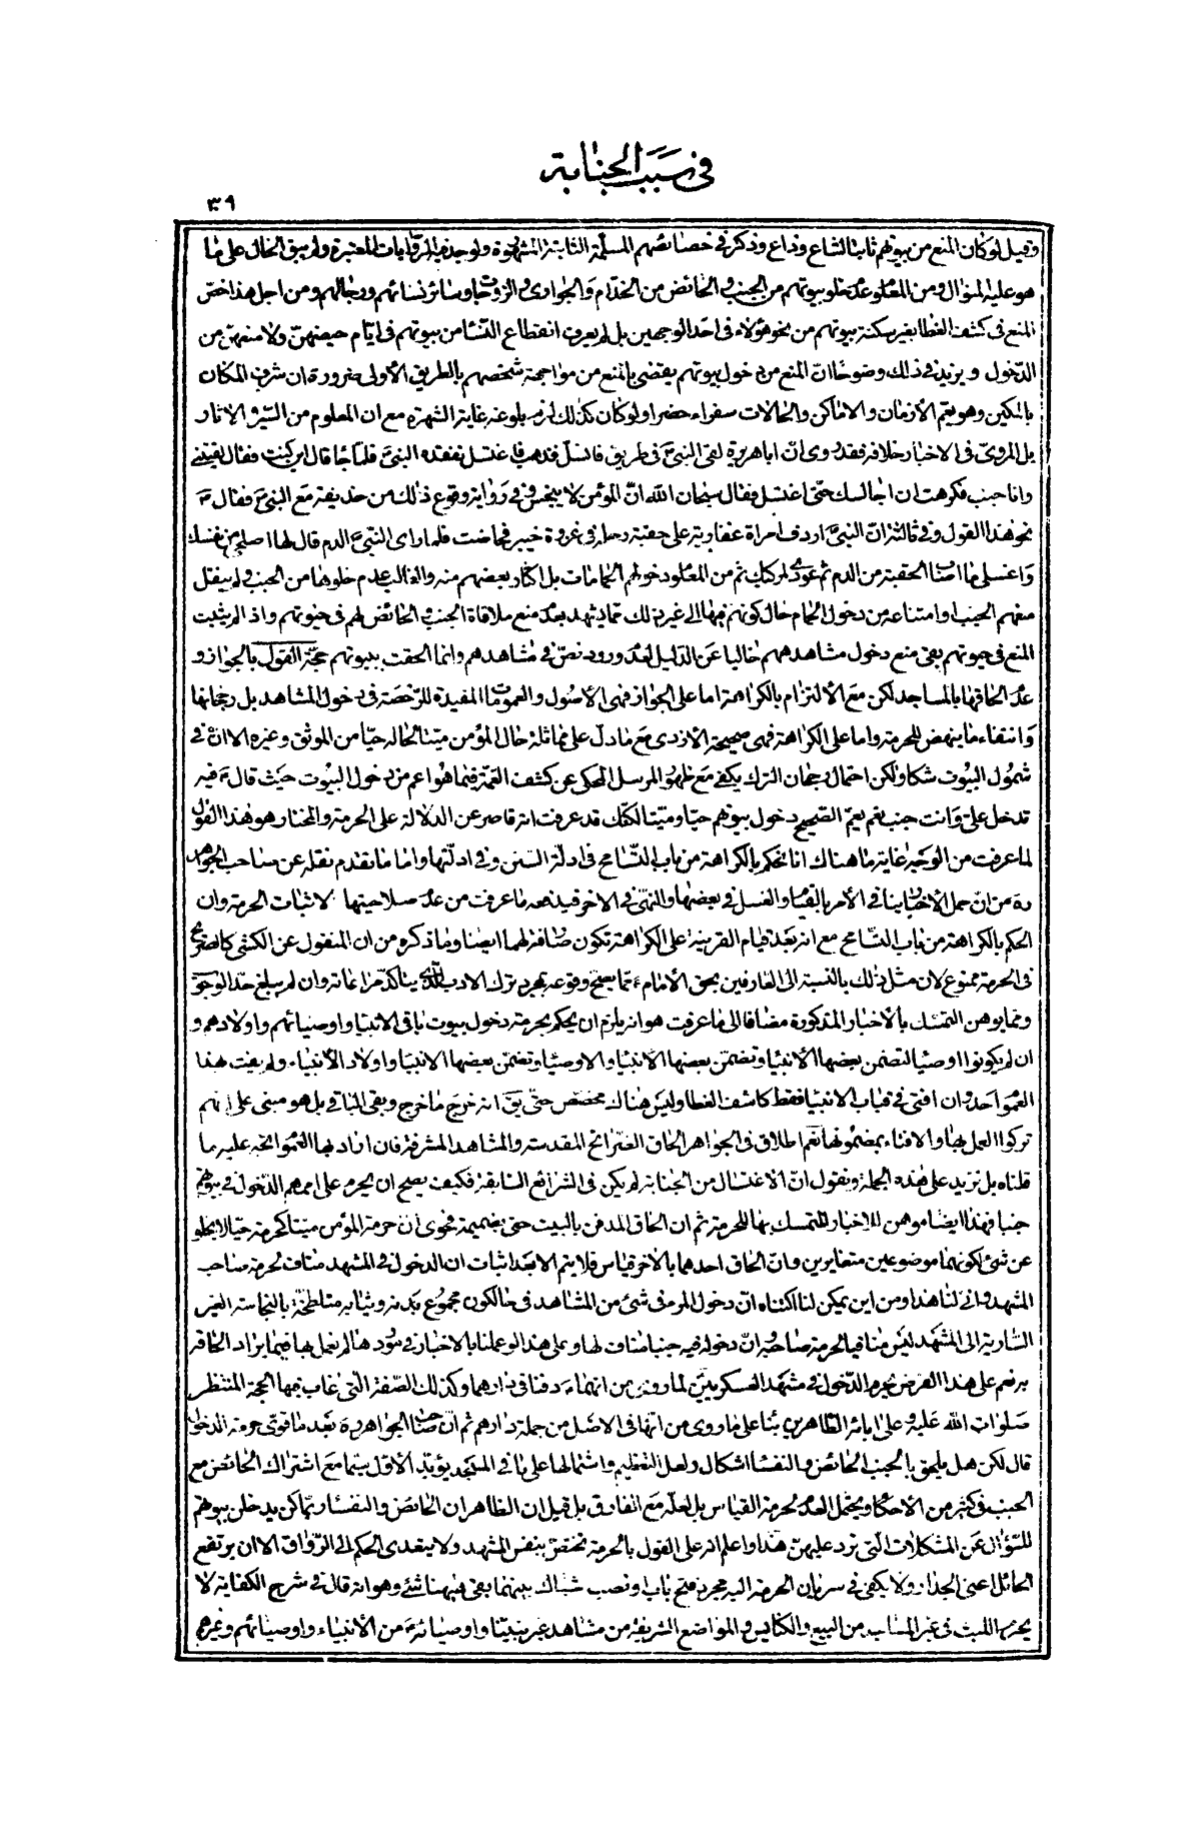 في سبب الجنابة
٣٩
وقيل لو كان المنع من بيوتهم ثابتا لشاع وذاع وذكر في خصائصهم المسلّمة الثابتة المشهورة ولوجد في الروايات المعتبرة ولم يبق الحال على ما
هو عليه للسؤال ومن المعلوم عدم خلو بيوتهم من الجنب والحائض من الخدّام والجواري والزوجات وسائر نسائهم ورجالهم ومن اجل هذا خصّ
المنع في كشف الغطا بغير سكنة بيوتهم من نحو هؤلاء في احد الوجهين بل لم يعرف انقطاع النّساء من بيوتهم في ايّام حيضهنّ ولا منعهنّ من
الدّخول ويزيد في ذلك وضوحًا انّ المنع من دخول بيوتهم يقتضي بالمنع من مواجهة شخصهم بالطريق الأولى ضرورة ان شرف المكان
بالمكين وهو يعم الأزمان والاماكن والحالات سفراء حضرا ولو كان كذلك لزم بلوغه غاية الشهرة مع ان المعلوم من السّير والاثار
بل المرويّ في الاخبار خلافه فقد روى انّ ابا هريرة لقى النبيّ ص في طريق فانسلّ فذهب فاغتسل ففقده النبيّ ص فلمّا جاء قال اين كنت فقال لقيتني
وانا جنب فكرهت ان اجالسك حتّى اغتسل فقال سبحان الله انّ المؤمن لا ينجس وفي رواية وقوع ذلك من حذيفة مع النبيّ ص فقال ص
نحو هذا القول وفي ثالثة انّ النبيّ ص اردف امراة غفارية على حقيبة رحله في غزوة خيبر فحاضت فلما راى النبيّ ص الدم قال لها اصلحي من نفسك
واغسلي ما اصاب الحقيبة من الدم ثم عودي لمركبك ثم من المعلوم دخولهم الحمامات بل اكثار بعضهم منه والغالب عدم خلوها من الجنب ولم ينقل
منعهم الجنب او امتناعه من دخول الحمام حال كونهم فيها الى غير ذلك ممّا يشهد بعدم منع ملاقاة الجنب والحائض لهم في حيوتهم واذ لم يثبت
المنع في حيوتهم بقى منع دخول مشاهدهم خاليا عن الدليل لعدم ورود نصّ في مشاهدهم وانما الحقت ببيوتهم حجّة القول بالجواز و
عدم الحاقها بالمساجد لكن مع الالتزام بالكراهة اما على الجواز فهى الأصول والعمومات المفيدة للرّخصة في دخول المشاهد بل رجحانها
وانتفاء ما ينهض للحرمة واما على الكراهة فهى صحيحة الازدى مع ما دلّ على مماثلة حال المؤمن ميتا لحاله حيّا من الموثق وغيره الا انّ في
شمول البيوت شكا ولكن احتمال رجحان الترك يكفى مع ظهور المرسل المحكى عن كشف الغمّة فيما هو اعم من دخول البيوت حيث قال ع فيه
تدخل علىّ وانت جنب نعم يعمّ الصّحيح دخول بيوتهم حيا وميتا لكنّك قد عرفت انه قاصر عن الدلالة على الحرمة والمختار هو هذا القول
لما عرفت من الوجه غاية ما هناك انا نحكم بالكراهة من باب التسامح في ادلة السنن وفي ادلّتها واما ما تقدم نقله عن صاحب الجواهر
ره من انّ حمل الأخبار ينافى الأمر بالقيام والغسل في بعضها والنّهى في الاخر فيدفعه ما عرفت من عدم صلاحيتها لاثبات الحرمة وان
الحكم بالكراهة من باب التسامح مع انه بعد قيام القرينة على الكراهة تكون صارفة لهما ايضا وما ذكره من ان المنقول عن الكشى كالصّريح
في الحرمة ممنوع لان مثل ذلك بالنسبة الى العارفين بحق الأمام ع مما يصحّ وقوعه بمجرد ترك الادب الّذى يتاكّد مراعاته وان لم يبلغ حدّ الوجوب
ومما يوهن التمسّك بالأخبار المذكورة مضافا الى ما عرفت هو انه يلزم ان يحكم بحرمة دخول بيوت باقى الانبياء واوصيائهم واولادهم و
ان لم يكونوا اوصياء لتضمن بعضها الأنبياء وتضمّن بعضها الأنبياء والاوصياء وتضمّن بعضها الانبياء واولاد الأنبياء ولم يفت بهذا
العموم احد وان افتى في قباب الانبياء فقط كاشف الغطا وليس هناك مخصّص حتّى يق انه خرج ما خرج وبقى الباقي بل هو مبنى على انهم
تركوا العمل بها والافتاء بمضمونها نعم اطلاق في الجواهر الحاق الضرائح المقدسة والمشاهد المشرفة فان اراد بها العموم اتّجه عليه ما
قلناه بل نزيد على هذه الجملة ونقول انّ الاغتسال من الجنابة لم يكن في الشرائع السّابقة فكيف يصح ان يحرم على اممهم الدّخول في بيوتهم
جنبا فهذا ايضا موهن للاخبار للتمسك بها للحرمة ثم ان الحاق المدفن بالبيت حتى بضميمة فحوى انّ حرمة المؤمن ميتا كحرمته حيّا لا يخلو
عن شئ لكونهما موضوعين متغايرين وانّ الحاق احدهما بالاخر قياس فلا يتم الا بعد اثبات ان الدخول في المشهد مناف لحرمة صاحب
المشهد وانّى لنا هذا ومن اين يمكن لنا اكتناه انّ دخول المرء في شئ من المشاهد في حال كون مجموع بدنه وثيابه متلطخة بالنجاسة الغير
السّارية الى المشهد ليس منافيا لحرمة صاحبه وانّ دخوله فيه جنبا مناف لها وعلى هذا لو عملنا بالاخبار في مورد هالم نعمل بها فيما يراد الحاقه
به نعم على هذا الفرض يحرم الدّخول في مشهد العسكريين ع لما روى من انهما ع دفنا في دارهما وكذلك الصّفة الّتى غاب فيها الحجة المنتظر
صلوات الله عليه وعلى ابائه الطّاهرين بناء على ما روى من انها في الاصل من جملة دارهم ثم انّ صاحب الجواهر ره بعد ما قوّى حرمة الدخول
قال لكن هل يلحق بالجنب الحائض والنفساء اشكال ولعل التعظيم واشتمالها على ما في المسجد يؤيّد الأوّل سيّما مع اشتراك الحائض مع
الجنب في كثير من الاحكام ويحتمل العدم لحرمة القياس بل لعلّه مع الفارق بل قيل ان الظاهر ان الحائض والنفساء ربّما كن يدخلن بيوتهم
للسّؤال عن المشكلات الّتى ترد عليهنّ هذا واعلم انه على القول بالحرمة تختصّ بنفس المشهد ولا يتعدى الحكم الى الرّواق الا ان يرتفع
الحائل اعنى الجدار ولا يكفى في سريان الحرمة اليه مجرد فتح باب او نصب شباك بينهما بقى هيهنا شئ وهو انه قال في شرح الكفاية لا
يحرم اللبث في غير المساجد من البيع والكنايس والمواضع الشريفة من مشاهد غير نبيّنا واوصيائه ع من الأنبياء واوصيائهم وغيرهم